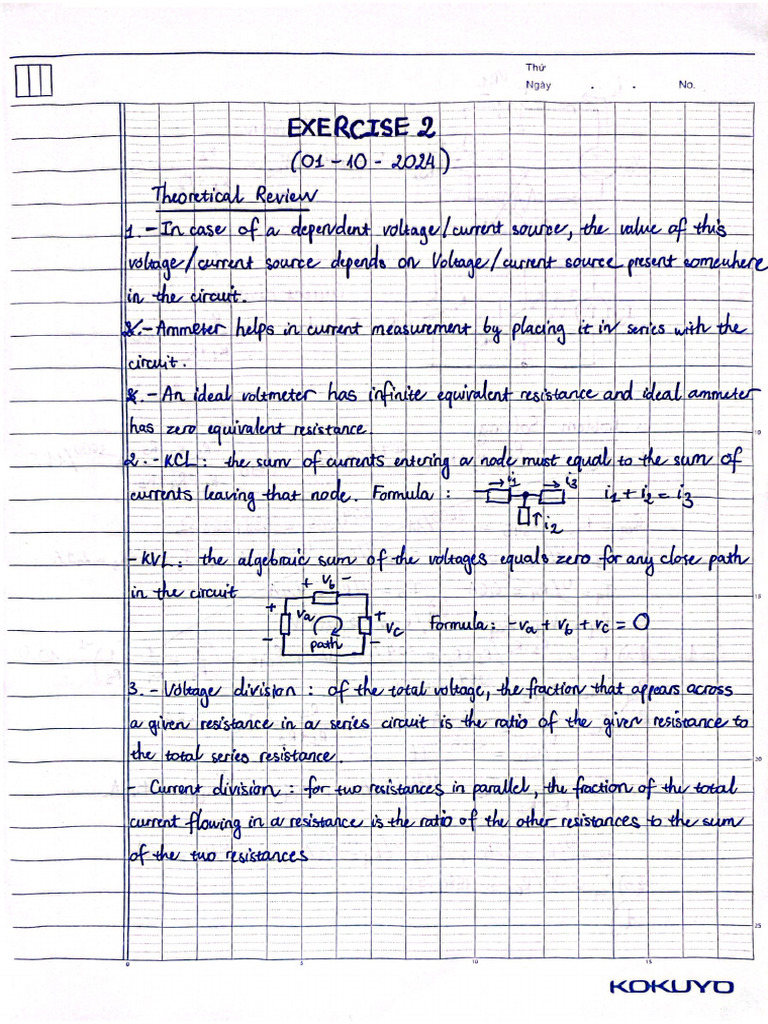 Thứ
Ngày . . No.
EXERCISE 2
(01 - 10 - 2024)
Theoretical Review
1. - In case of a dependent voltage/current source, the value of this
voltage/current source depends on Voltage/current source present somewhere
in the circuit.
- Ammeter helps in current measurement by placing it in series with the
circuit.
- An ideal voltmeter has infinite equivalent resistance and ideal ammeter
has zero equivalent resistance.
2. - KCL: the sum of currents entering a node must equal to the sum of
currents leaving that node. Formula : i1 i3 i2 i1 + i2 = i3
- KVL: the algebraic sum of the voltages equals zero for any close path
in the circuit
+ vb -
+ va - path + vc - Formula: -va + vb + vc = 0
3. - Voltage division : of the total voltage, the fraction that appears across
a given resistance in a series circuit is the ratio of the given resistance to
the total series resistance.
- Current division : for two resistances in parallel, the fraction of the total
current flowing in a resistance is the ratio of the other resistances to the sum
of the two resistances
10
15
20
25
0 5 10 15
KOKUYO